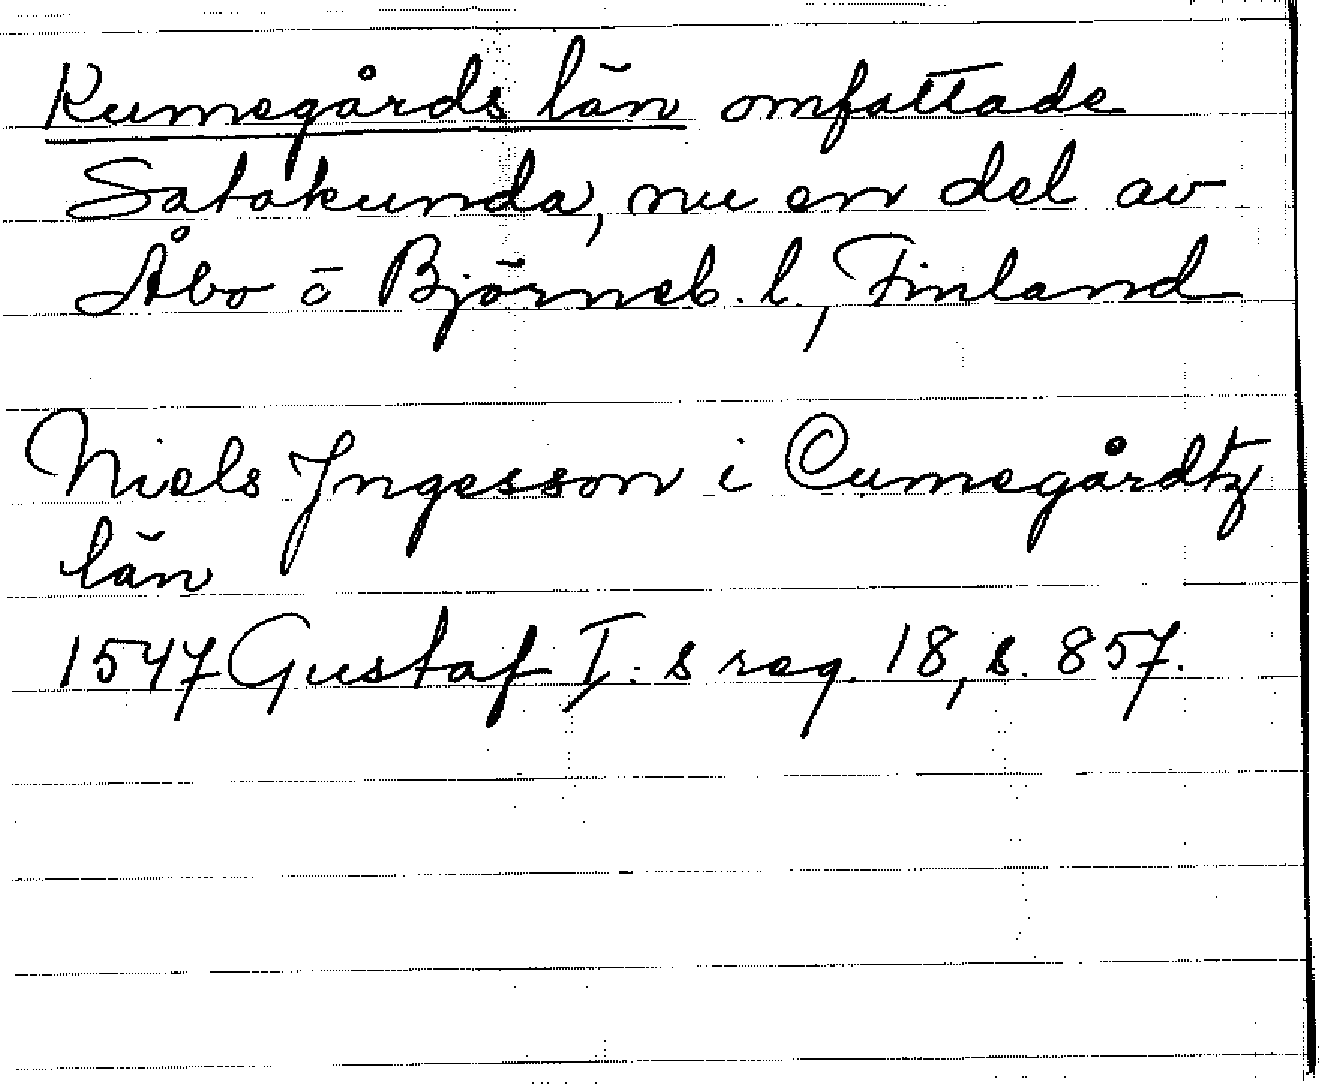 Kumegårds län omfattade
Satakunda, nu en del av
Åbo o Björneb. l., Finland
Niels Jngesson i Cumegårdtz
län
1547 Gustaf I:s reg. 18, s. 857.